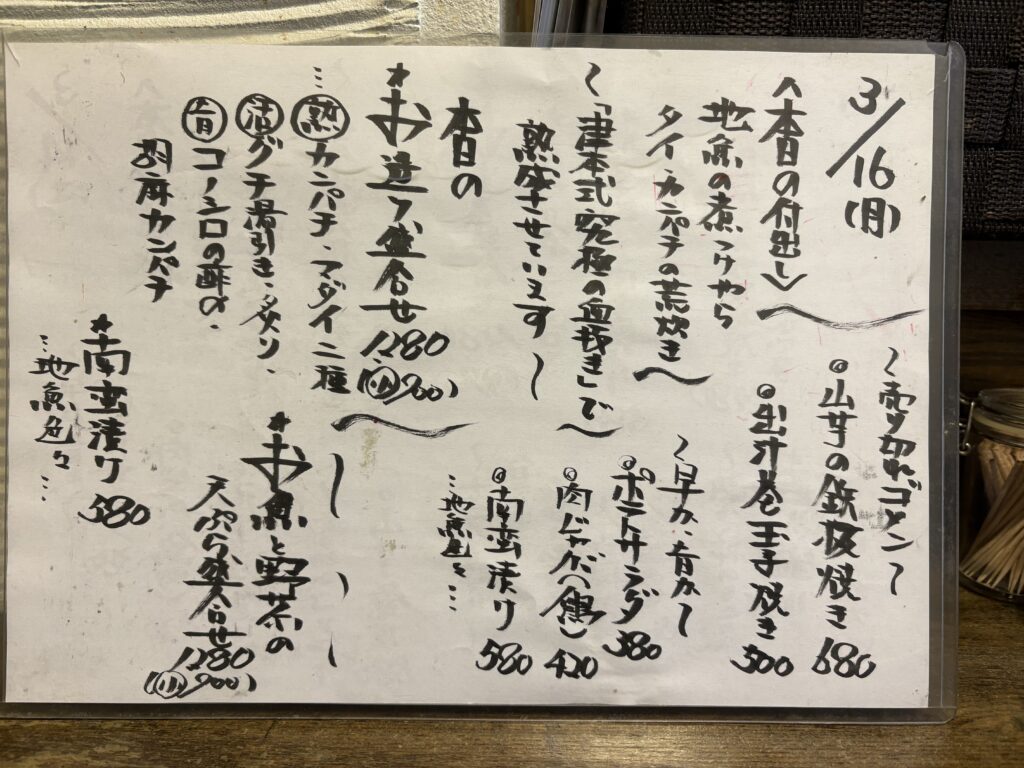 3/16(月)
〈本日の付出し〉
地魚の煮つけやら
タイ・カンパチの荒炊き〜
〜「津本式究極の血抜き」で〜
熟成させています〜
本日の
*お造り盛合せ 1280
(小900)
…熟カンパチ・マダイ二種
活グチ湯引き・炙り、
コノシロの酢〆、
胡麻カンパチ
*南蛮漬け 580
…地魚色々…
〜売り切れゴメン〜
◎山芋の鉄板焼き 680
◎出汁巻玉子焼き 500
〜早か、旨か〜
◎ポテトサラダ 380
◎肉じゃが(鶏) 420
◎南蛮漬け 580
…地魚色々…
*お魚と野菜の
天ぷら盛合せ 1280
(小900)